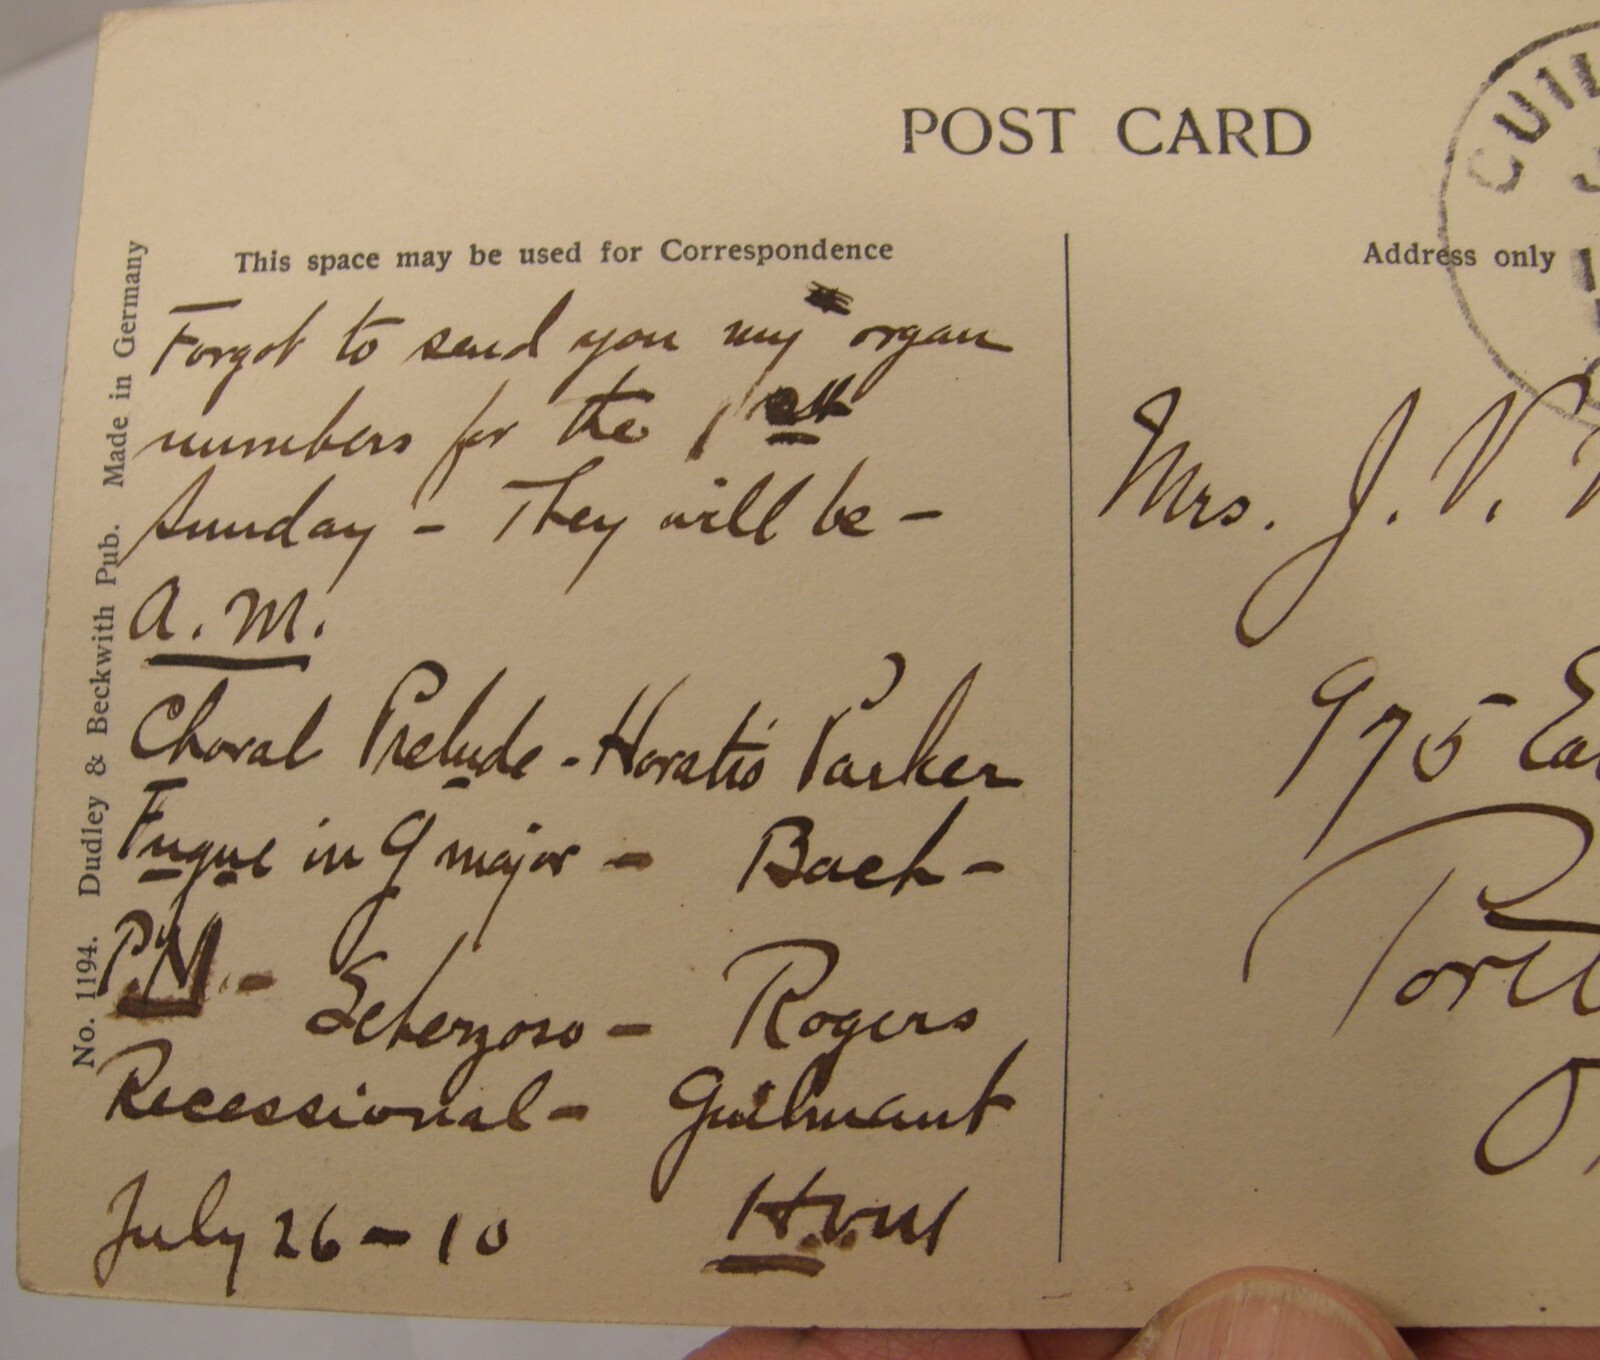 POST CARD
This space may be used for Correspondence
Address only
No. 1194. Dudley & Beckwith Pub. Made in Germany
Forgot to send you my organ
numbers for the 1st
Sunday - They will be -
A. M.
Choral Prelude - Horatio Parker
Fugue in G major - Bach -
P.M. - Scherzoso - Rogers
Recessional - Guilmant
July 26 - 10
Mrs. J. V.
975 Ea
Portl